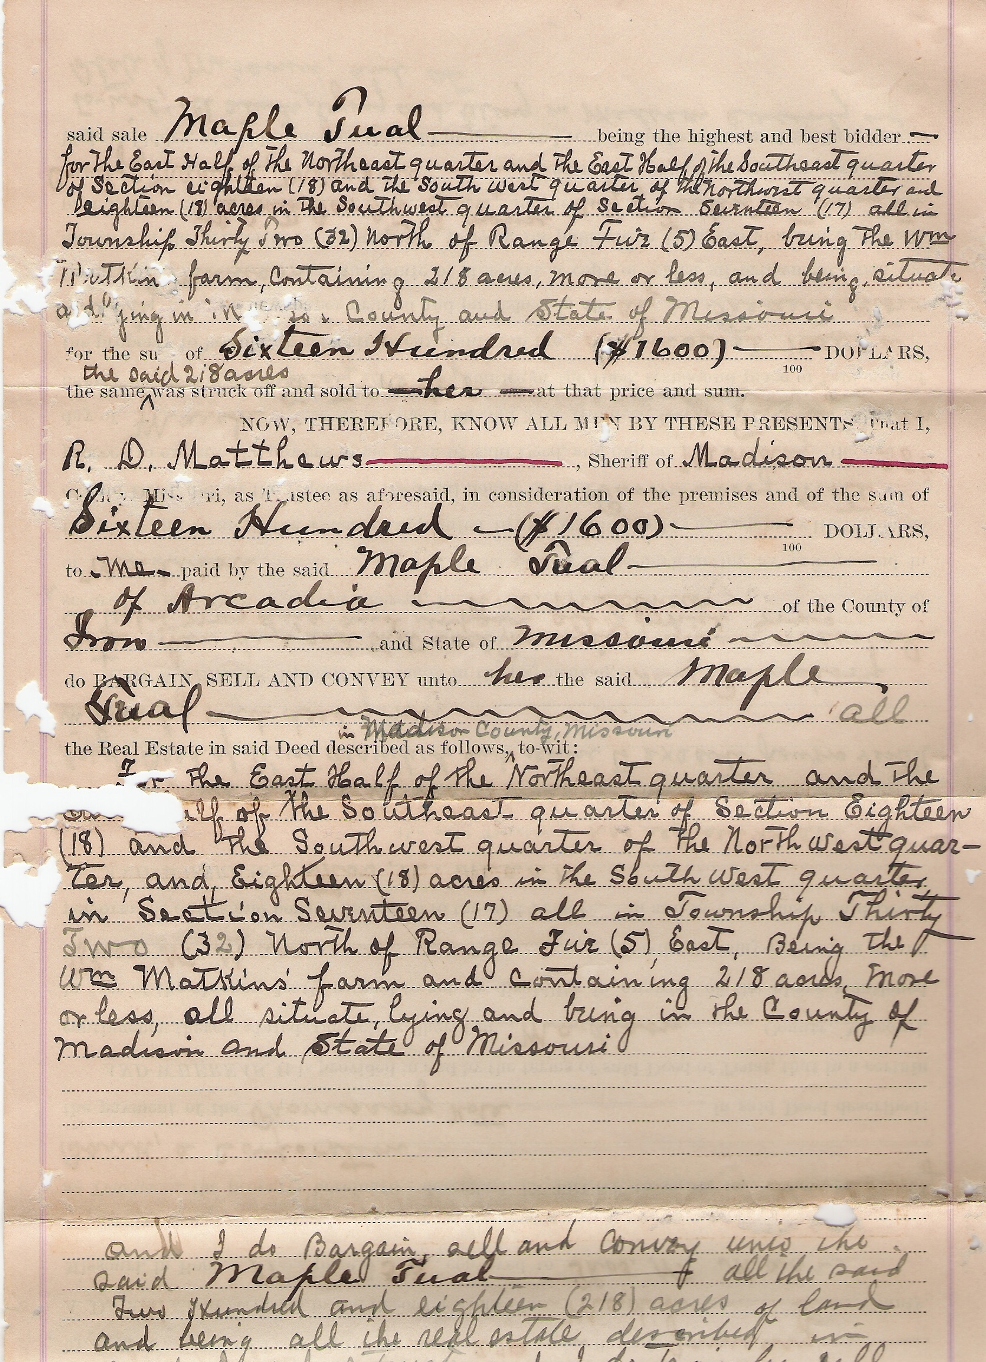 said sale Maple Tual being the highest and best bidder
for the East Half of the Northeast quarter and the East Half of the Southeast quarter
of Section eighteen (18) and the South west quarter of the Northwest quarter and
eighteen (18) acres in the Southwest quarter of Section Seventeen (17) all in
Township Thirty Two (32) North of Range Five (5) East, being the Wm
farm, Containing 218 acres, more or less, and being, situate
County and State of Missouri
for the su of Sixteen Hundred ($1600) DOLLARS,
100
the said 218 acres
the same was struck off and sold to her at that price and sum.
NOW, THEREFORE, KNOW ALL MEN BY THESE PRESENTS, That I,
R. D. Matthews, Sheriff of Madison
County, Missouri, as Trustee as aforesaid, in consideration of the premises and of the sum of
Sixteen Hundred ($1600) DOLLARS,
100
to me paid by the said Maple Tual
of Arcadia of the County of
Iron and State of Missouri
do BARGAIN, SELL AND CONVEY unto her the said Maple
Tual all
in Maddison County, Missouri
the Real Estate in said Deed described as follows, to-wit:
For the East Half of the Northeast quarter and the
elf of the Southeast quarter of Section Eighteen
(18) and the Southwest quarter of the Northwest quar-
ter, and, Eighteen (18) acres in the South West quarter
in Section Seventeen (17) all in Township Thirty
Two (32) North of Range Five (5) East, Being the
Wm Matkins' farm and containing 218 acres, more
or less, all situate, lying and being in the County of
Madison and State of Missouri
and I do Bargain, sell and convey unto the
said Maple Tual all the said
Two Hundred and eighteen (218) acres of land
and being all the real estate described in